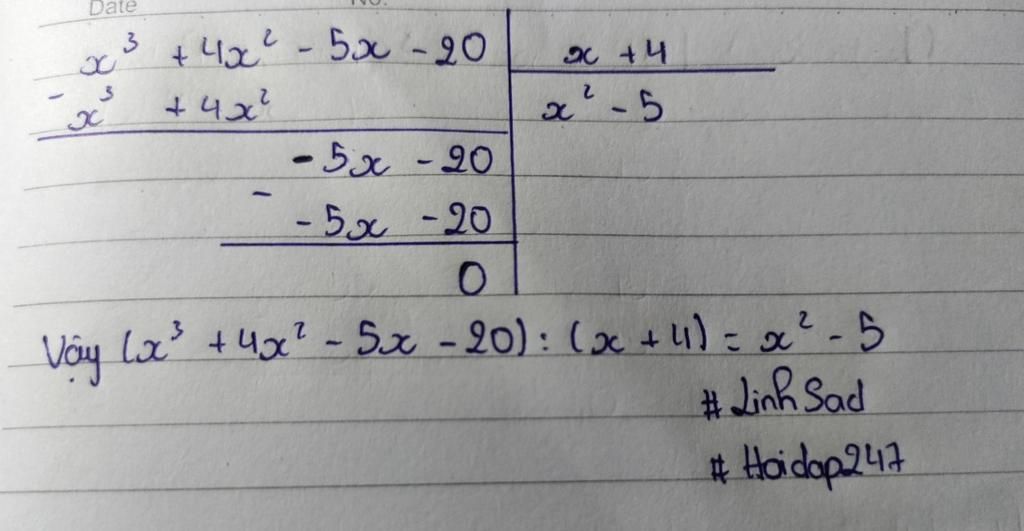 Date No.
x³ + 4x² - 5x - 20 x + 4
- x³ + 4x² x² - 5
- 5x - 20
-
- 5x - 20
0
Vậy (x³ + 4x² - 5x - 20) : (x + 4) = x² - 5
# Linh Sad
# Hoidap247